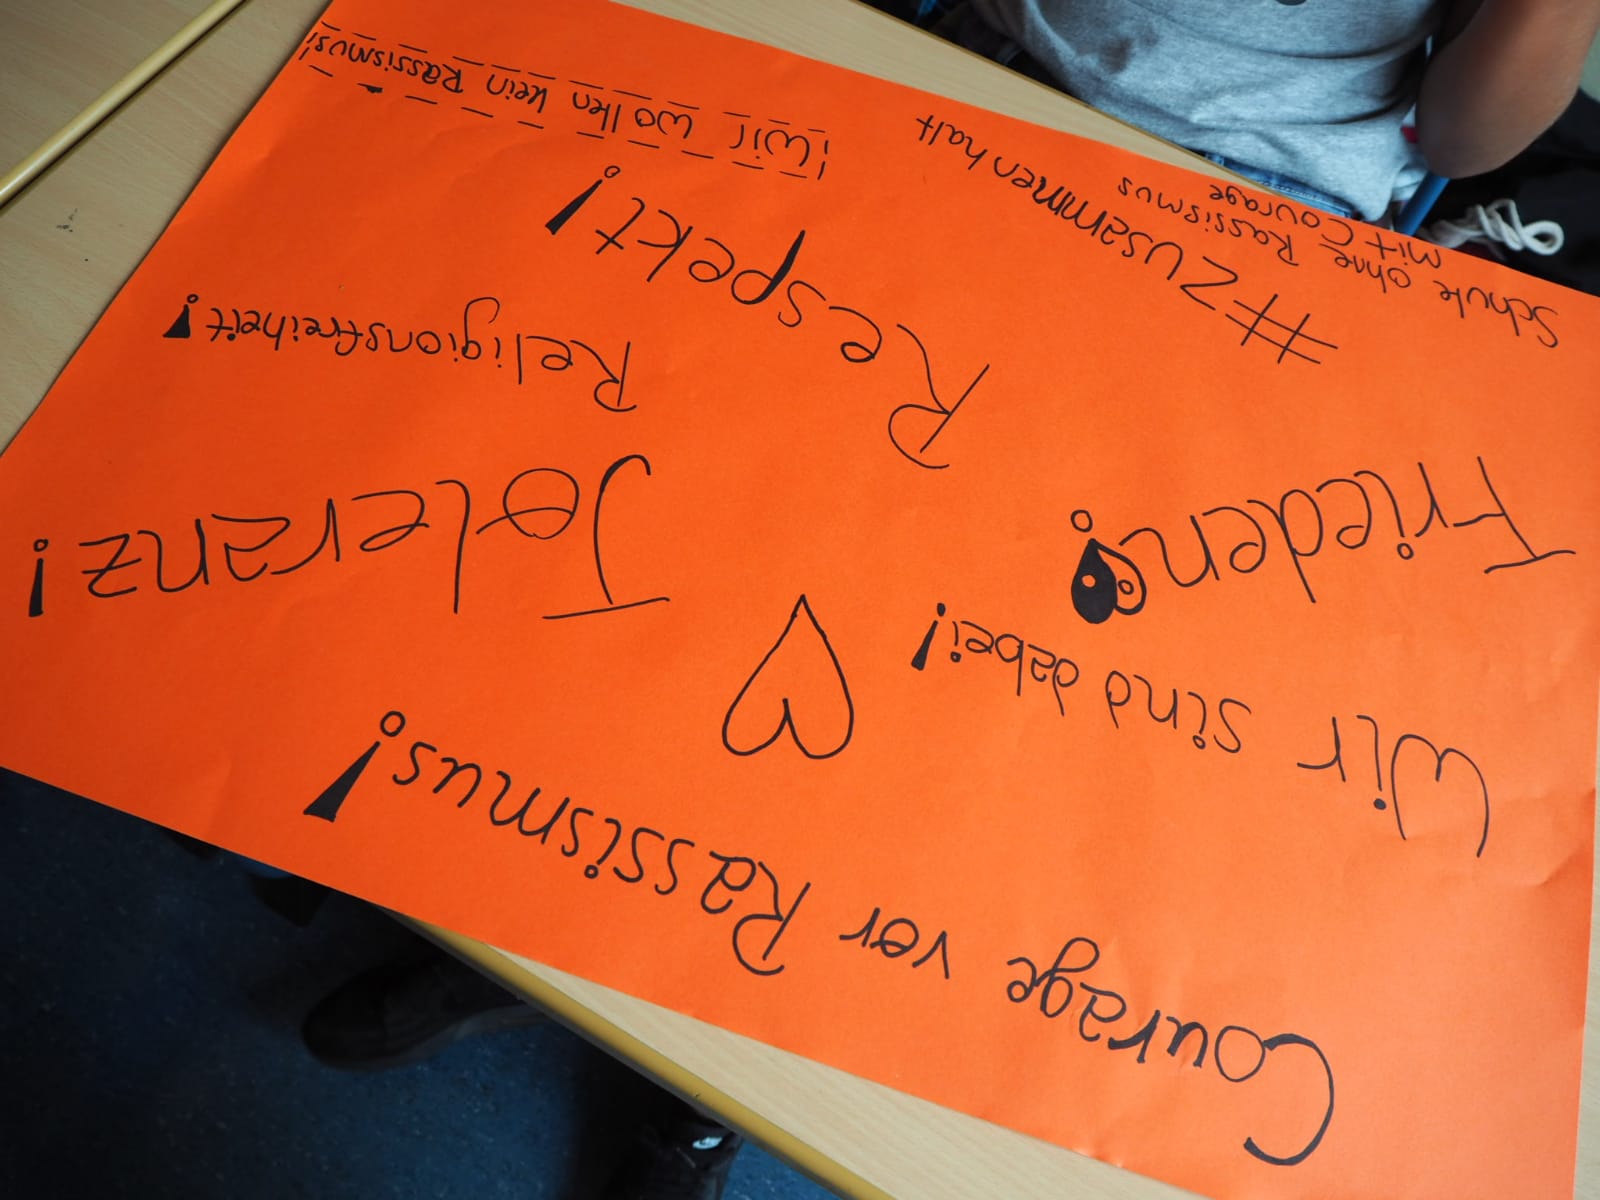 Courage vor Rassismus!
Wir sind dabei!
Toleranz!
Frieden!
Religionsfreiheit!
Respekt!
#Zusammenhalt
Schule ohne Rassismus
mit Courage
¡Wir wollen kein Rassismus!